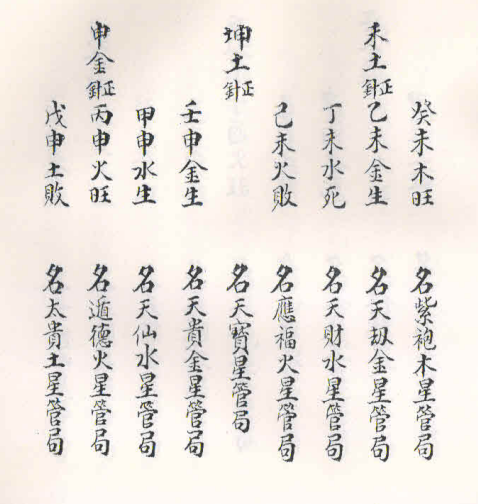 癸未木旺　名紫袍木星管局
未土正針乙未金生　名天刼金星管局
丁未水死　名天財水星管局
己未火敗　名應福火星管局
坤土正針　名天寳星管局
壬申金生　名天貴金星管局
甲申水生　名天仙水星管局
申金正針丙申火旺　名遁德火星管局
戊申土敗　名太貴土星管局